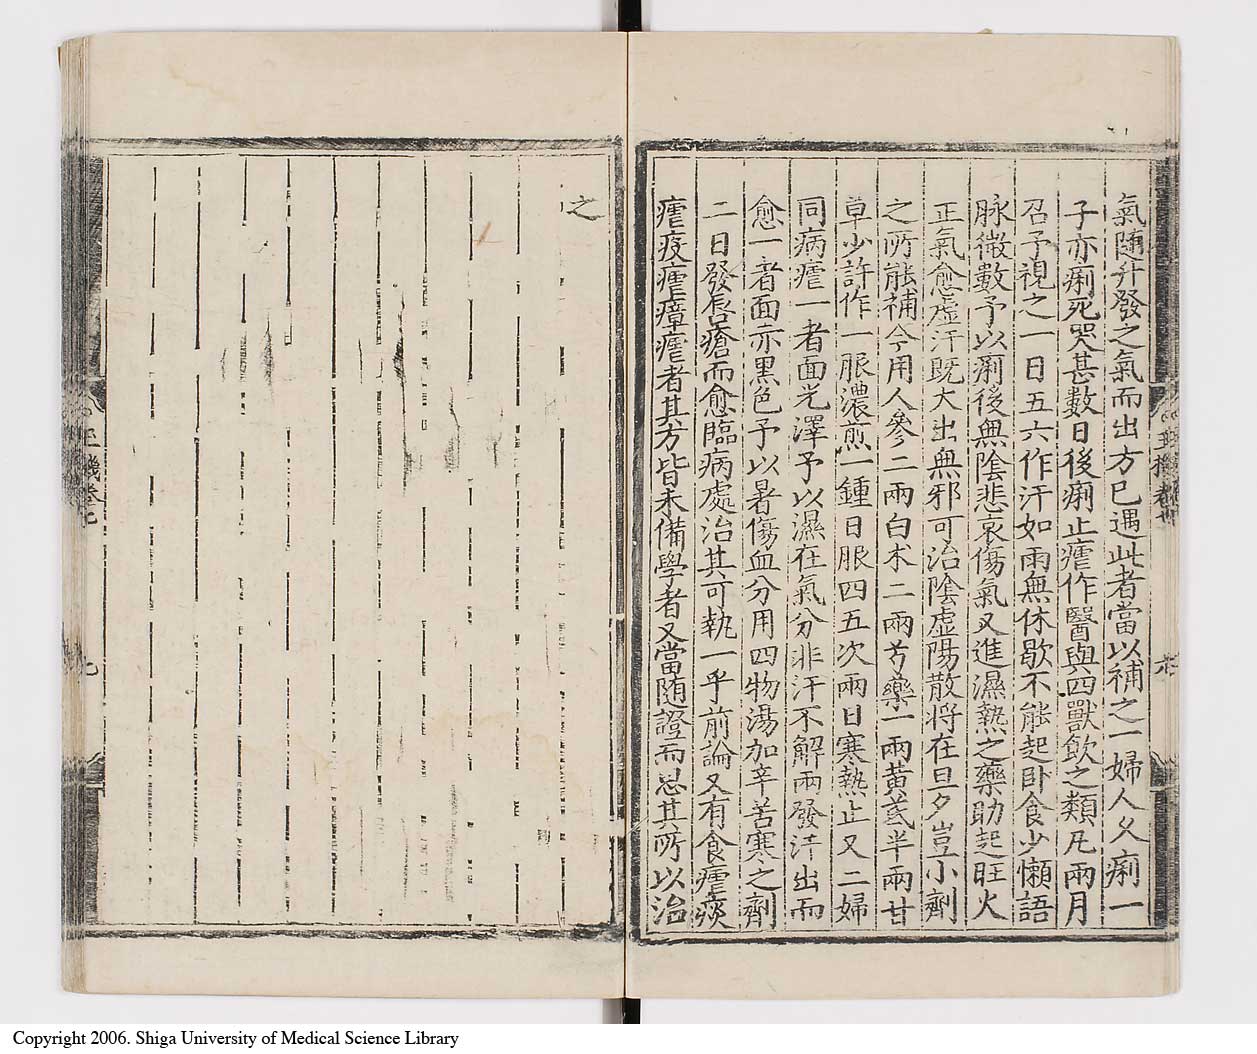 氣随升發之氣而出方已遇此者當以補之一婦人久痢一
子亦痢死哭甚數日後痢止瘧作醫與四獸飲之類凡兩月
召予視之一日五六作汗如雨無休歇不能起卧食少懶語
脉微數予以痢後無陰悲哀傷氣又進濕熱之藥助起旺火
正氣愈虛汗既大出無邪可治陰虛陽散将在旦夕豈小劑
之所能補今用人參二兩白术二兩芍藥一兩黃芪半兩甘
草少許作一服濃煎一鍾日服四五次兩日寒熱止又二婦
同病瘧一者面光澤予以濕在氣分非汗不解兩發汗出而
愈一者面赤黑色予以暑傷血分用四物湯加辛苦寒之劑
二日發唇瘡而愈臨病處治其可執一乎前論又有食瘧痰
瘧疫瘧瘴瘧者其方皆未備學者又當随證而思其所以治
之
玉機卷七
七
Copyright 2006. Shiga University of Medical Science Library